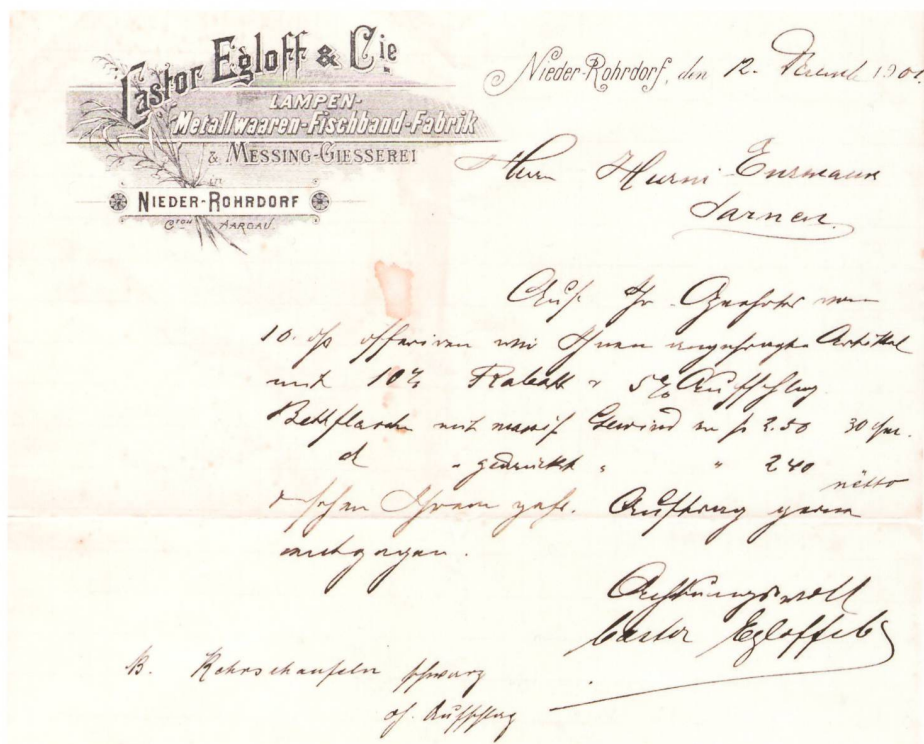 Castor Egloff & Cie
LAMPEN-
Metallwaaren-Fischband-Fabrik
& MESSING-GIESSEREI
in
NIEDER-ROHRDORF
Cton AARGAU.
Nieder-Rohrdorf, den 12. 190
Herrn Hurni-Enzmann
Sarnen
Auf Ihr Geehrtes vom
10. offeriren wir Ihnen angefragte Artikel
mit 10% Rabatt 5% Aufschlag
Bettflaschen mit massif Gewind zu fr 2.50 30
d " gedrückt " " 2 40
netto
sehen Ihrem gefl. Auftrag gerne
entgegen.
Achtungsvoll
Castor Egloff & Cie
B. Kehrschaufeln schwarz
of. Aufschlag